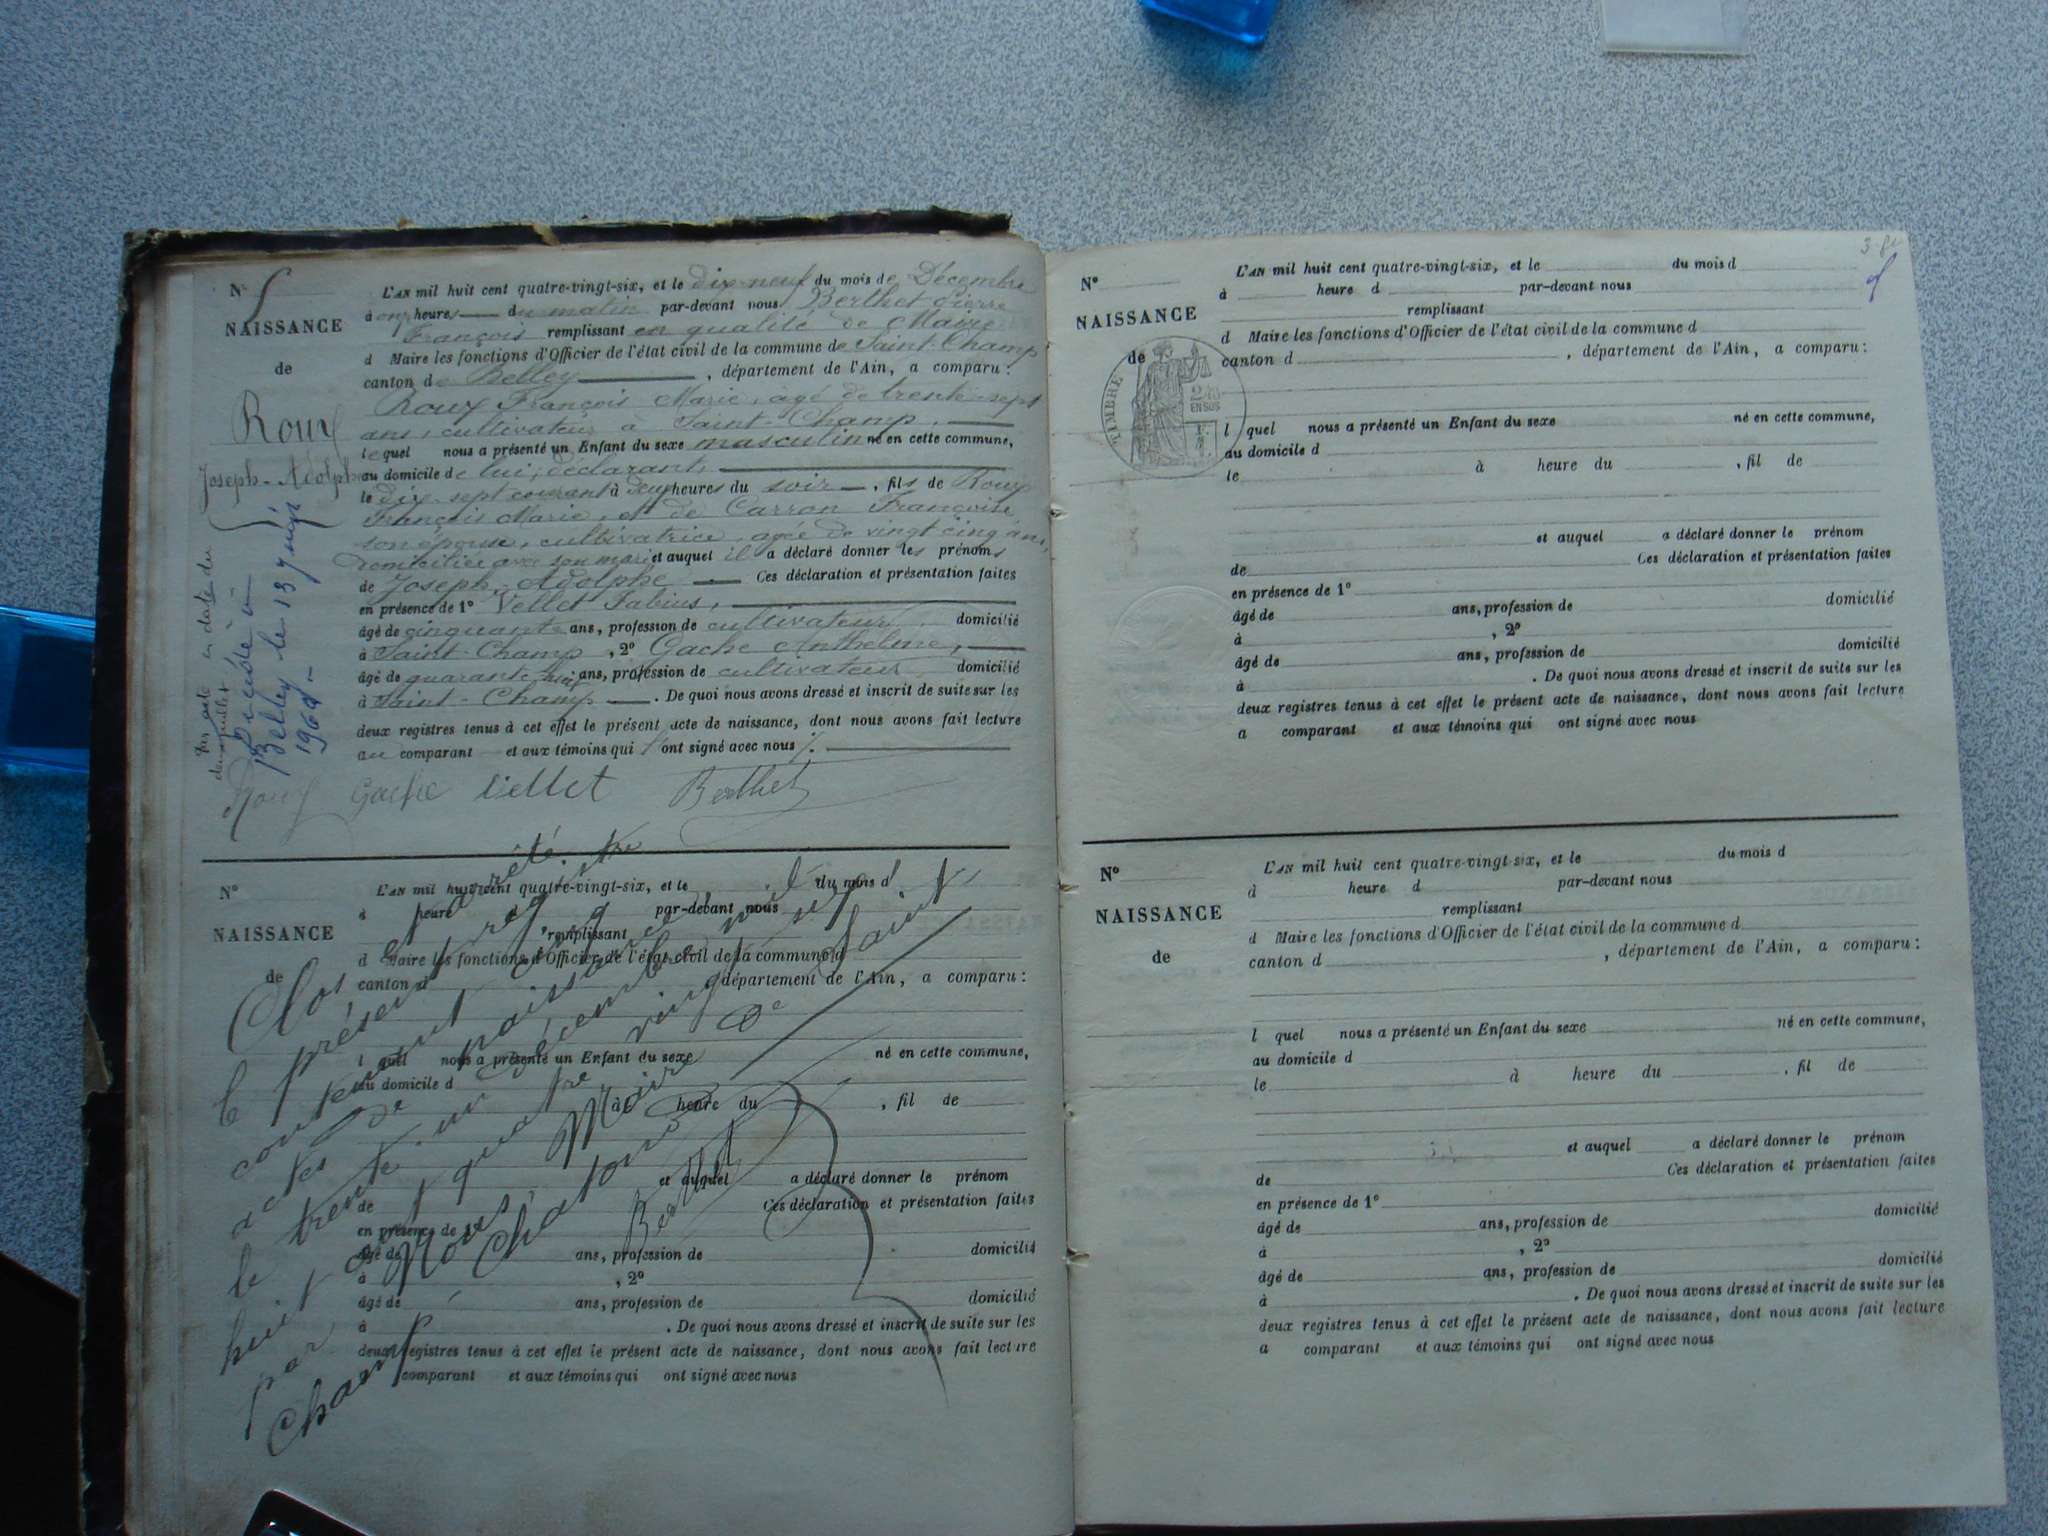 N° 5
NAISSANCE
de
Roux
Joseph-Adolphe
L'AN mil huit cent quatre-vingt-six, et le dix-neuf du mois de Décembre
à onze heures du matin par-devant nous Berthet Pierre
François remplissant en qualité de Maire
d Maire les fonctions d'Officier de l'état civil de la commune de Saint-Champ
canton de Belley, département de l'Ain, a comparu :
Roux François Marie, âgé de trente-sept
ans, cultivateur à Saint-Champ,
lequel nous a présenté un Enfant du sexe masculin né en cette commune,
au domicile de lui, déclarant,
le dix-sept courant à deux heures du soir, fils de Roux
François Marie, et de Carron Françoise
son épouse, cultivatrice, agée de vingt cinq ans,
domiciliée avec son mari et auquel il a déclaré donner les prénoms
de Joseph-Adolphe Ces déclaration et présentation faites
en présence de 1° Vellet Fabius,
âgé de cinquante ans, profession de cultivateur, domicilié
à Saint-Champ, 2° Gache Anthelme,
âgé de quarante-huit ans, profession de cultivateur domicilié
à Saint-Champ. De quoi nous avons dressé et inscrit de suite sur les
deux registres tenus à cet effet le présent acte de naissance, dont nous avons fait lecture
au comparant et aux témoins qui ont signé avec nous
Roux Gache Vellet Berthet
en date du
Décédé à
Belley le 13
1969
N°
NAISSANCE
de
L'AN mil huit cent quatre-vingt-six, et le du mois d
à heure d par-devant nous
remplissant
d Maire les fonctions d'Officier de l'état civil de la commune d
canton d , département de l'Ain, a comparu :
l quel nous a présenté un Enfant du sexe né en cette commune,
au domicile d
le à heure du , fil de
et auquel a déclaré donner le prénom
de Ces déclaration et présentation faites
en présence de 1°
âgé de ans, profession de domicilié
à , 2°
âgé de ans, profession de domicilié
à . De quoi nous avons dressé et inscrit de suite sur les
deux registres tenus à cet effet le présent acte de naissance, dont nous avons fait lecture
a comparant et aux témoins qui ont signé avec nous
Clos et arrêté
le présent registre
contenant cinq
actes de naissance
le trente-un décembre mil
huit cent quatre vingt six
par Nous Maire de Saint
Champ Chatonod
Berthet
N°
NAISSANCE
de
TIMBRE
EN SUS
L'AN mil huit cent quatre-vingt-six, et le du mois d
à heure d par-devant nous
remplissant
d Maire les fonctions d'Officier de l'état civil de la commune d
canton d , département de l'Ain, a comparu :
l quel nous a présenté un Enfant du sexe né en cette commune,
au domicile d
le à heure du , fil de
et auquel a déclaré donner le prénom
de Ces déclaration et présentation faites
en présence de 1°
âgé de ans, profession de domicilié
à , 2°
âgé de ans, profession de domicilié
à . De quoi nous avons dressé et inscrit de suite sur les
deux registres tenus à cet effet le présent acte de naissance, dont nous avons fait lecture
a comparant et aux témoins qui ont signé avec nous
N°
NAISSANCE
de
L'AN mil huit cent quatre-vingt-six, et le du mois d
à heure d par-devant nous
remplissant
d Maire les fonctions d'Officier de l'état civil de la commune d
canton d , département de l'Ain, a comparu :
l quel nous a présenté un Enfant du sexe né en cette commune,
au domicile d
le à heure du , fil de
et auquel a déclaré donner le prénom
de Ces déclaration et présentation faites
en présence de 1°
âgé de ans, profession de domicilié
à , 2°
âgé de ans, profession de domicilié
à . De quoi nous avons dressé et inscrit de suite sur les
deux registres tenus à cet effet le présent acte de naissance, dont nous avons fait lecture
a comparant et aux témoins qui ont signé avec nous